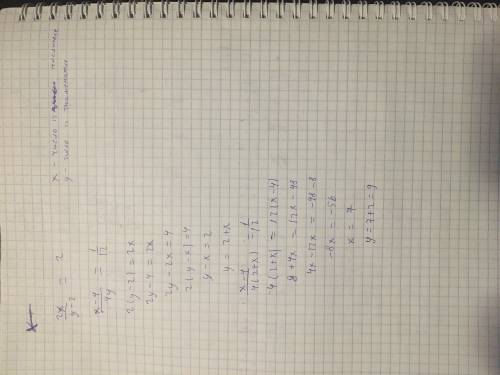 x - число числитель
y число знаменатель
x
2x / y-2 = 2
x-4 / 4y = 1/12
2(y-2)=2x
2y-4=2x
2y-2x=4
2(y-x)=4
y-x=2
y=2+x
x-4 / 4(2+x) = 1/12
4(2+x)=12(x-4)
8+4x=12x-48
4x-12x=-48-8
-8x=-56
x=7
y=7+2=9